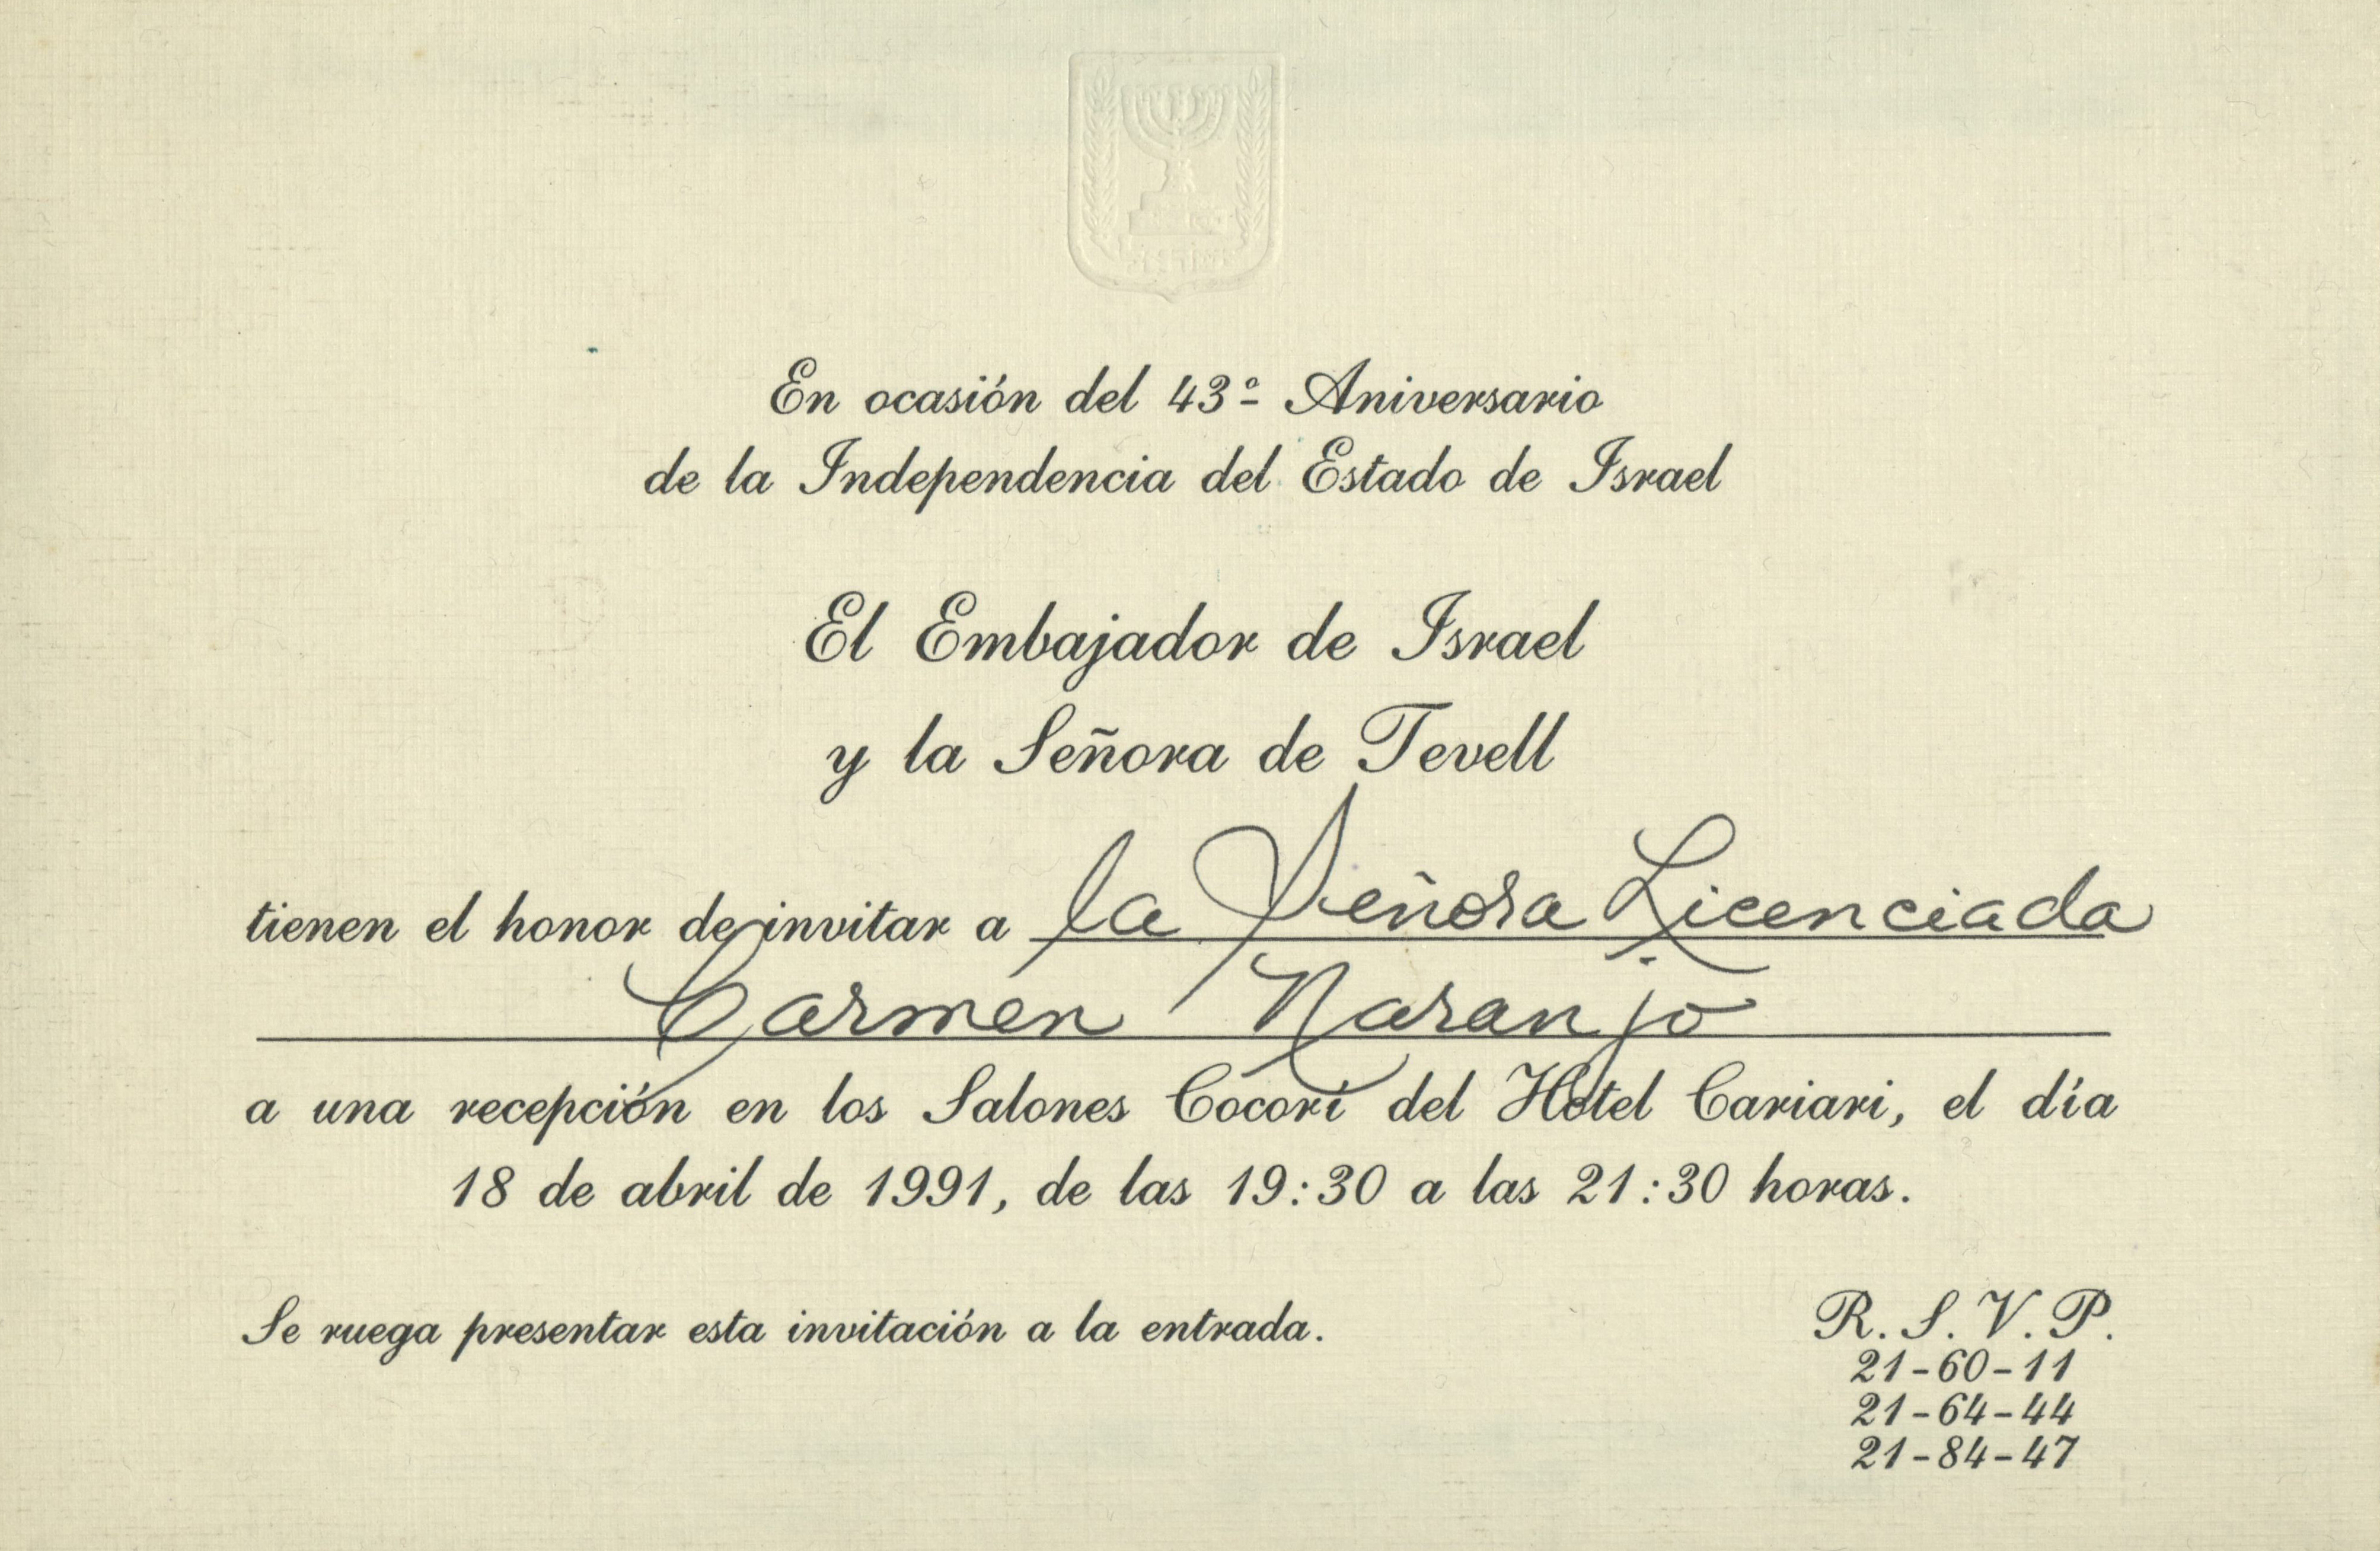 En ocasión del 43º Aniversario
de la Independencia del Estado de Israel
El Embajador de Israel
y la Señora de Tevell
tienen el honor de invitar a la Señora Licenciada
Carmen Naranjo
a una recepción en los Salones Cocorí del Hotel Cariari, el día
18 de abril de 1991, de las 19:30 a las 21:30 horas.
Se ruega presentar esta invitación a la entrada.
R. S. V. P.
21-60-11
21-64-44
21-84-47